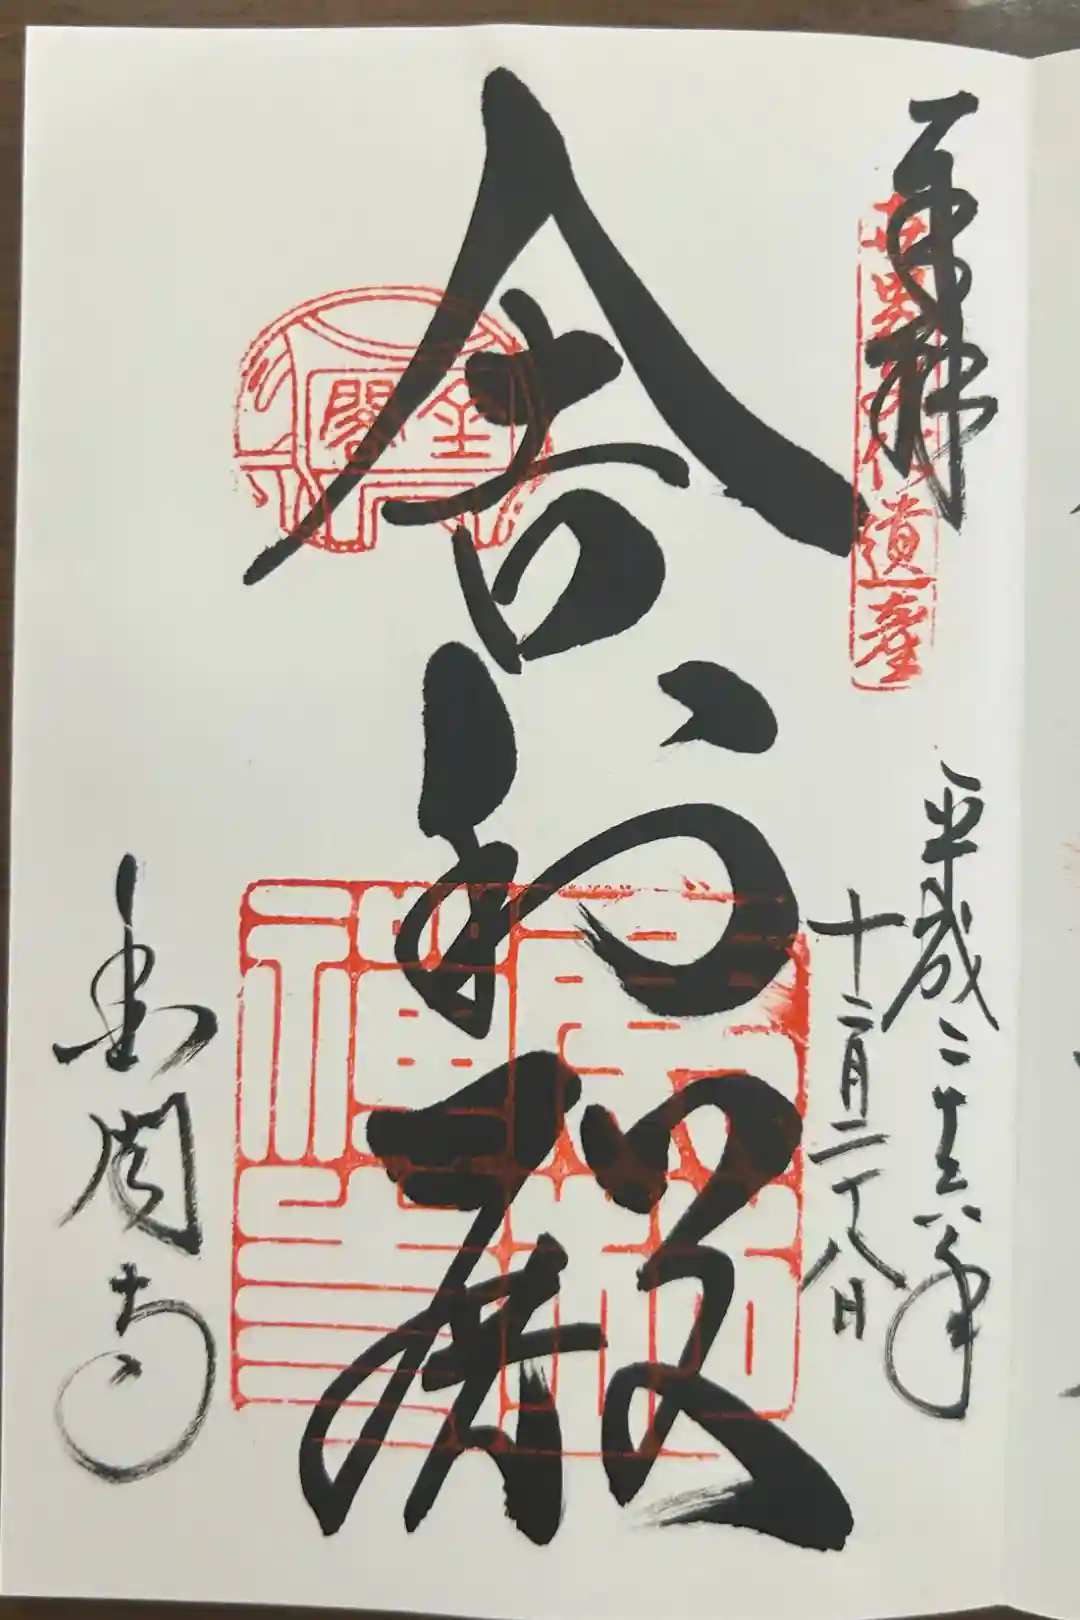 奉拝
世界文化遺産
平成二十六年
十二月二十八日
舎利殿
金閣
鹿苑
禅寺
金閣寺